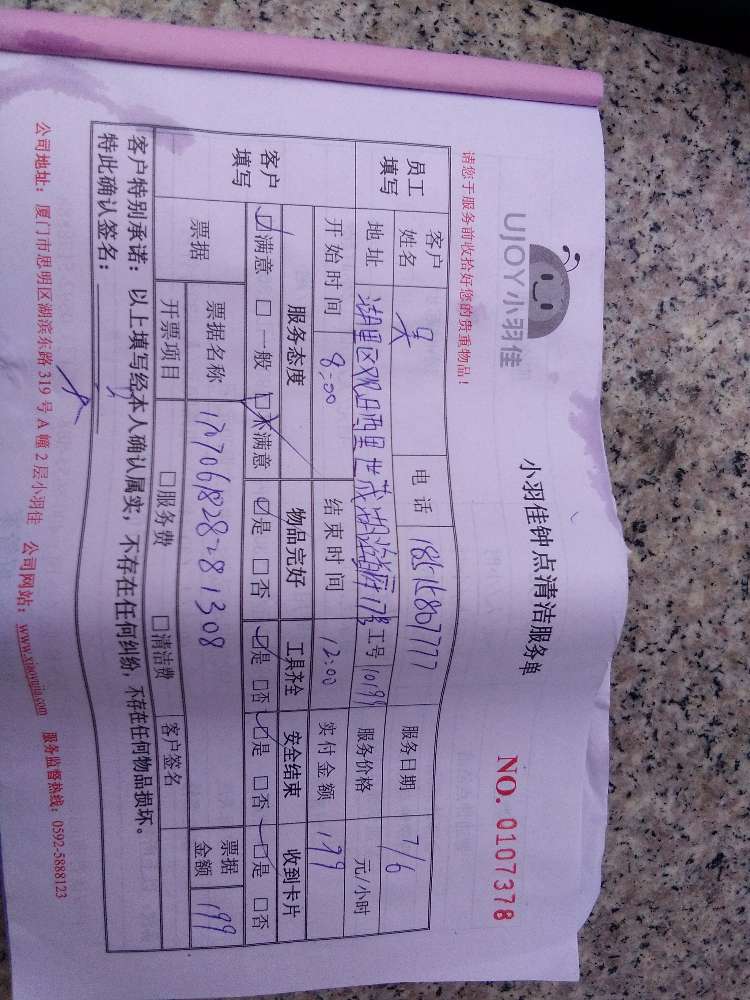 UJOY小羽佳
小羽佳钟点清洁服务单
NO. 0107378
请您于服务前收拾好您的贵重物品！
员工填写 客户姓名 吴 电话 18515867777 服务日期 7/6
地址 湖里区观日西里世茂湖滨 工号 10199 服务价格 元/小时
开始时间 8:00 结束时间 12:00 实付金额 199
客户填写 服务态度 物品完好 工具齐全 安全结束 收到卡片
☑满意 □一般 □不满意 ☑是 □否 ☑是 □否 ☑是 □否 ☑是 □否
票据 票据名称 票据金额 199
开票项目 □服务费 □清洁费 客户签名
客户特别承诺：以上填写经本人确认属实，不存在任何纠纷，不存在任何物品损坏。
特此确认签名：
公司地址：厦门市思明区湖滨东路319号A幢2层小羽佳 公司网站：www.xiaoyujia.com 服务监督热线：0592-5888123